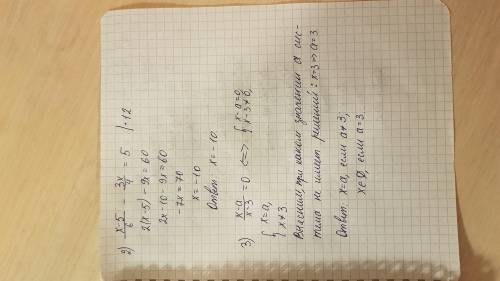 2) x-5/6 - 3x/4 = 5 | ·12
2(x-5) - 9x = 60
2x-10-9x=60
-7x=70
x=-10
Ответ: x=-10.
3) x-a/x-3 = 0 <=> { x-a=0, x-3≠0,
{ x=a, x≠3
Выясним, при каком значении a сис-
тема не имеет решений: x=3 => a=3
Ответ: x=a, если a≠3;
x∈∅, если a=3.